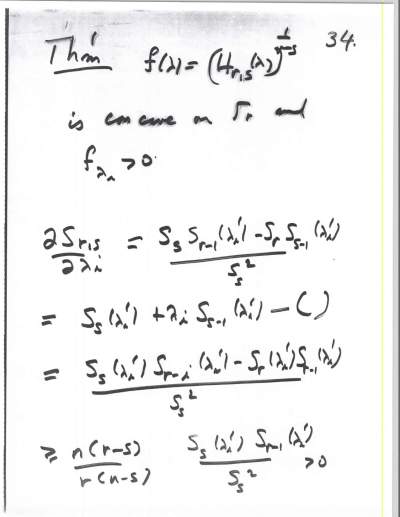 34.
Thm f(λ) = (H_{r,s}(λ))^{1/(r-s)}
is concave on Γ_r and
f_{λ_i} > 0.
∂S_{r,s}/∂λ_i = (S_s S_{r-1}(λ_i') - S_r S_{s-1}(λ_i'))/S_s^2
= S_s(λ_i') + λ_i S_{s-1}(λ_i') - ( )
= (S_s(λ_i') S_{r-1}(λ_i') - S_r(λ_i') S_{s-1}(λ_i'))/S_s^2
≥ n(r-s)/r(n-s) S_s(λ_i') S_{r-1}(λ_i')/S_s^2 > 0